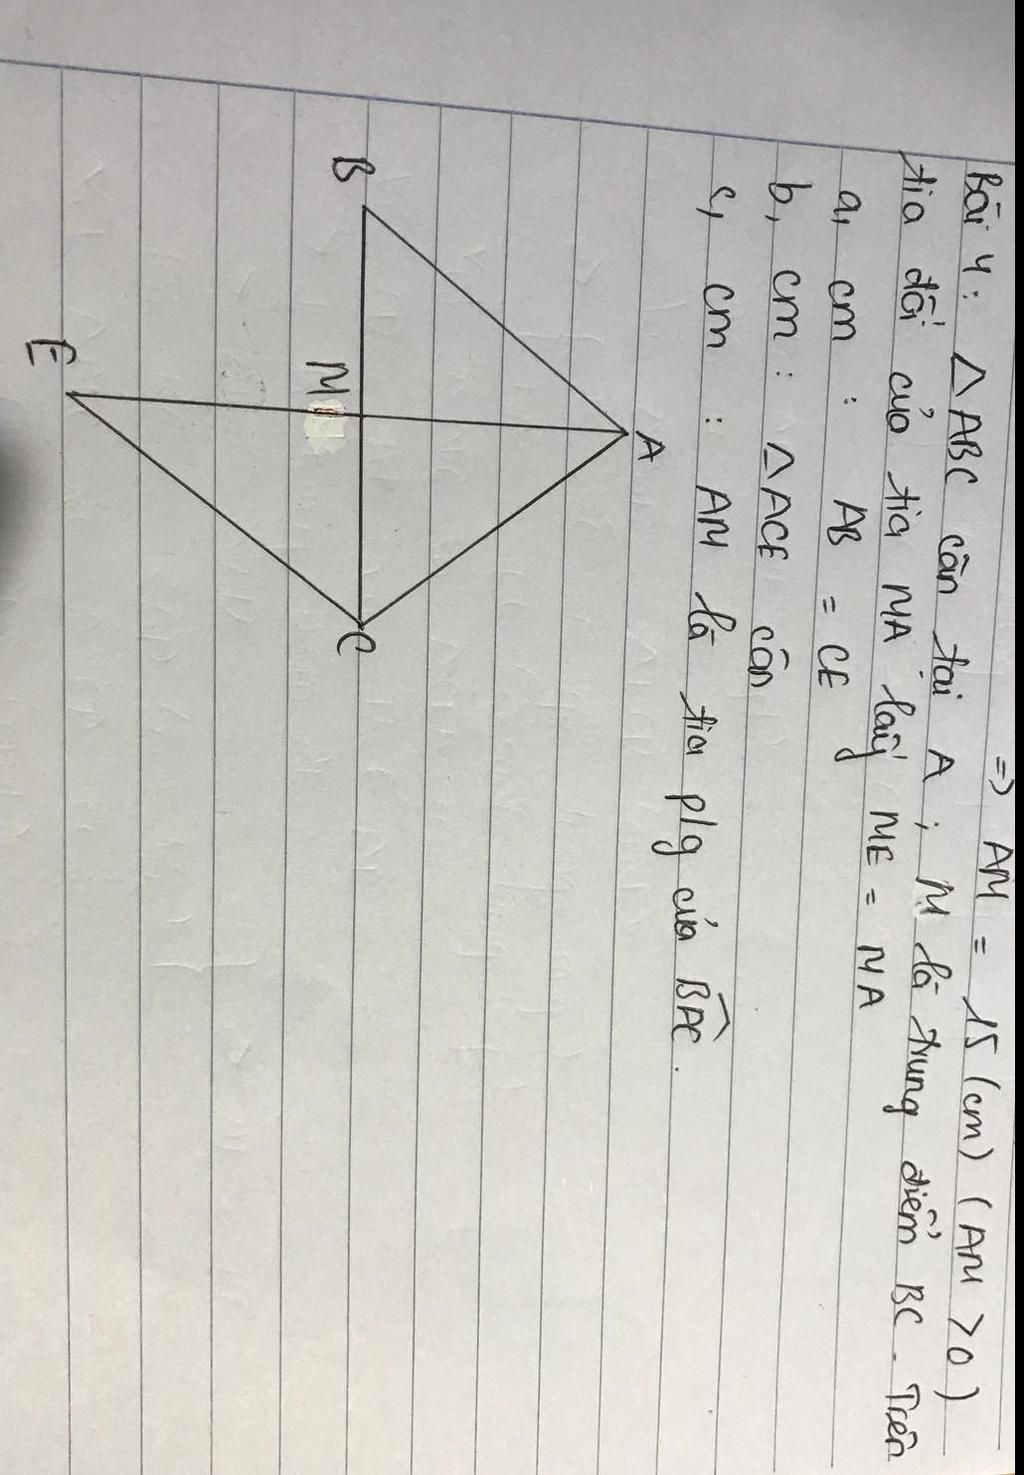 => AM = 15 (cm) (AM > 0)
Bài 4: △ABC cân tại A; M là trung điểm BC. Trên
tia đối của tia MA lấy ME = MA
a, cm: AB = CE
b, cm: △ACE cân
c, cm: AM là tia p/g của B̂AC.
A
B
M
C
E